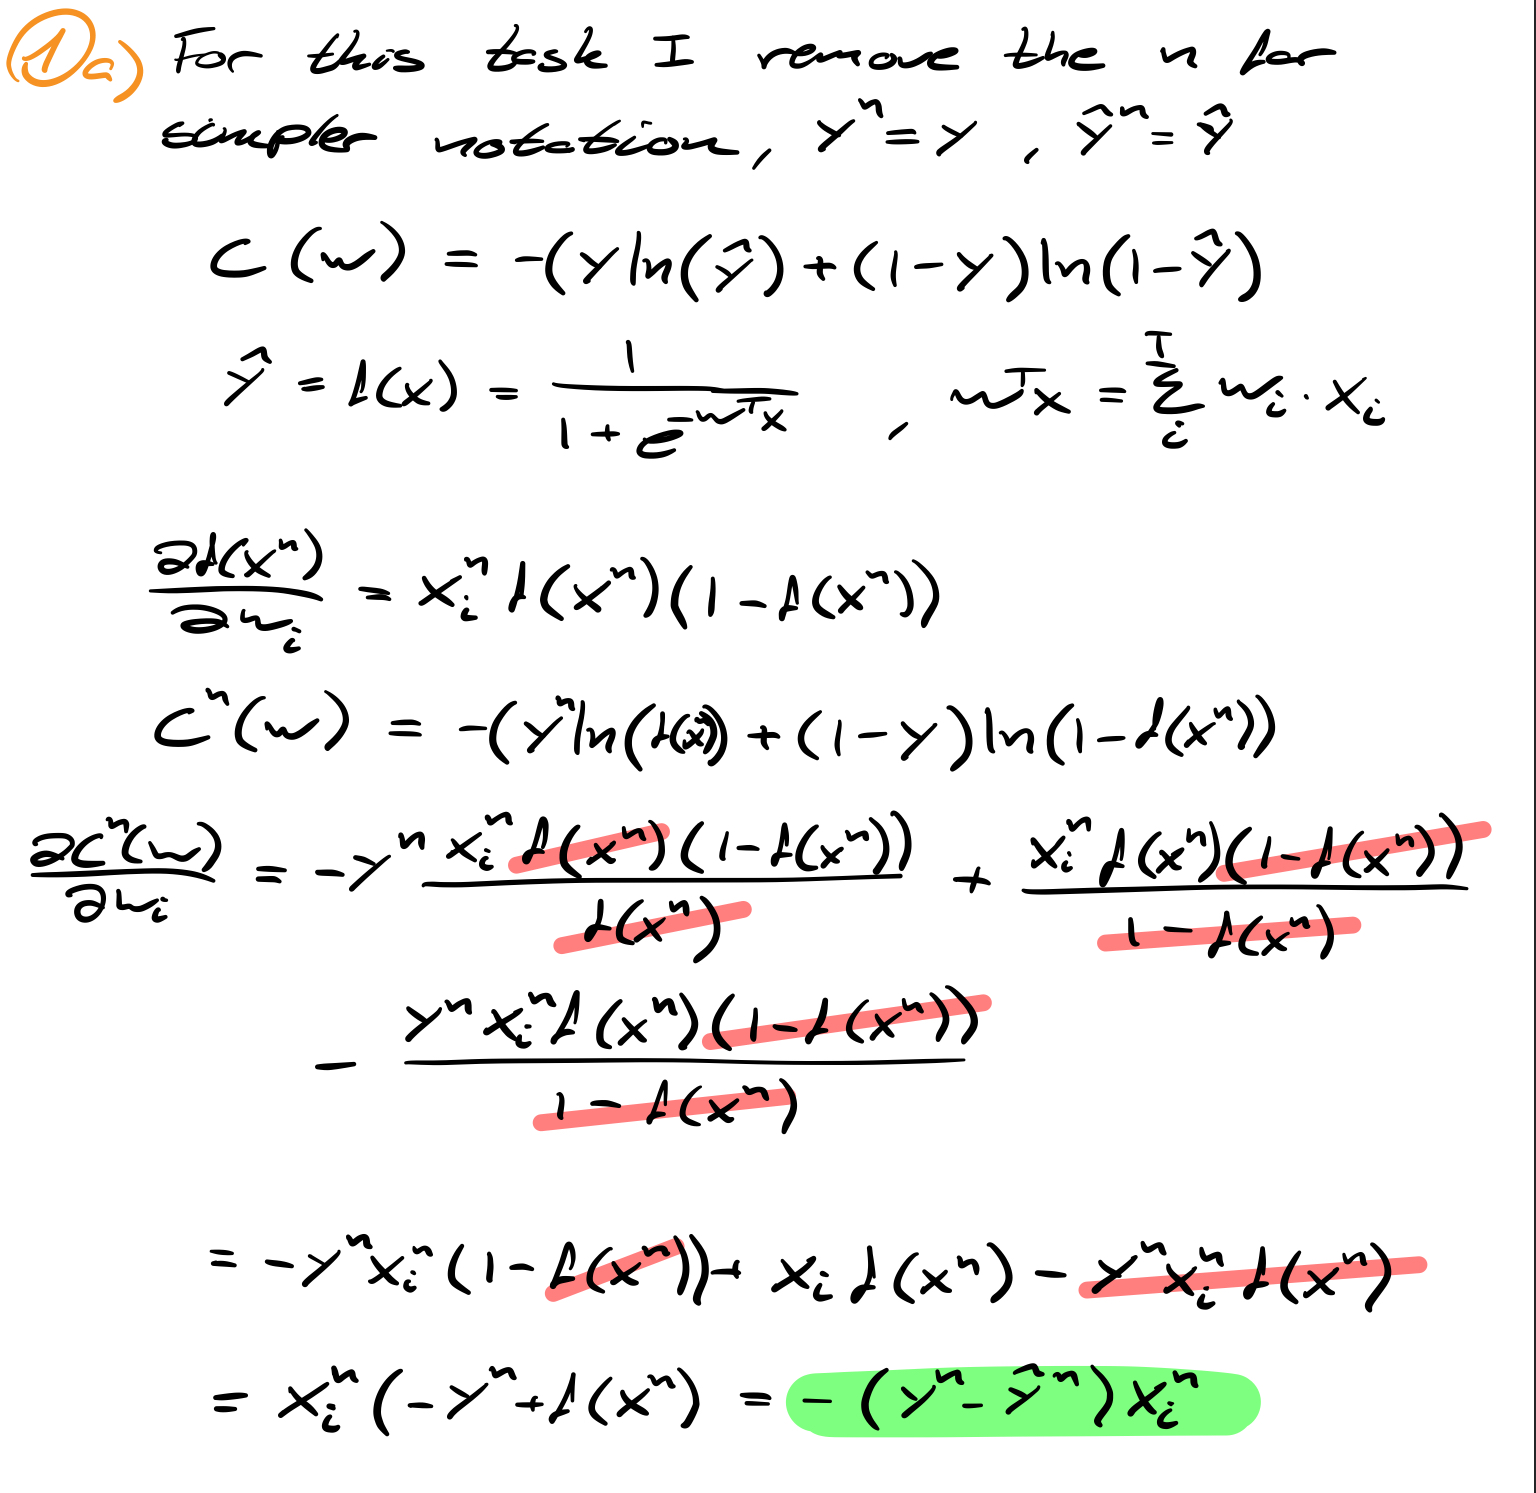 1a) For this task I remove the n for
simpler notation, yⁿ = y , ŷⁿ = ŷ
C (w) = -(y ln(ŷ) + (1-y) ln(1-ŷ)
ŷ = f(x) = 1 / (1 + e^(-wᵀx)) , wᵀx = Σ_i^I w_i · x_i
∂f(xⁿ) / ∂w_i = x_iⁿ f(xⁿ)(1 - f(xⁿ))
Cⁿ(w) = -(yⁿ ln(f(x)) + (1-y) ln(1 - f(xⁿ))
∂Cⁿ(w) / ∂w_i = -yⁿ x_iⁿ f(xⁿ)(1 - f(xⁿ)) / f(xⁿ) + x_iⁿ f(xⁿ)(1 - f(xⁿ)) / 1 - f(xⁿ)
- yⁿ x_iⁿ f(xⁿ)(1 - f(xⁿ)) / 1 - f(xⁿ)
= -yⁿ x_iⁿ (1 - f(xⁿ)) + x_i f(xⁿ) - yⁿ x_iⁿ f(xⁿ)
= x_iⁿ (-yⁿ + f(xⁿ) = - (yⁿ - ŷⁿ) x_iⁿ